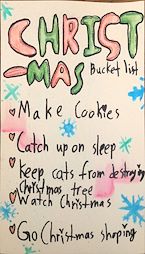 CHRIST
-MAS
Bucket list
Make Cookies
Catch up on sleep
Keep cats from destroying
Christmas tree
Watch Christmas
Go Christmas shoping